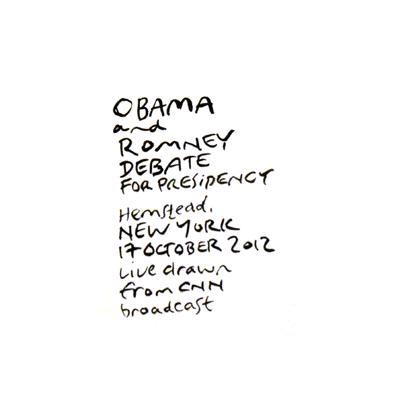 OBAMA
and
ROMNEY
DEBATE
FOR PRESIDENCY
Hemstead,
NEW YORK
17 OCTOBER 2012
Live drawn
from CNN
broadcast